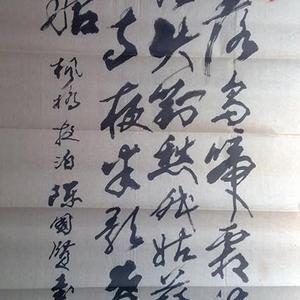 落烏啼霜
火對愁眠姑蘇
寺夜半
船
楓橋夜泊 陳國賢書